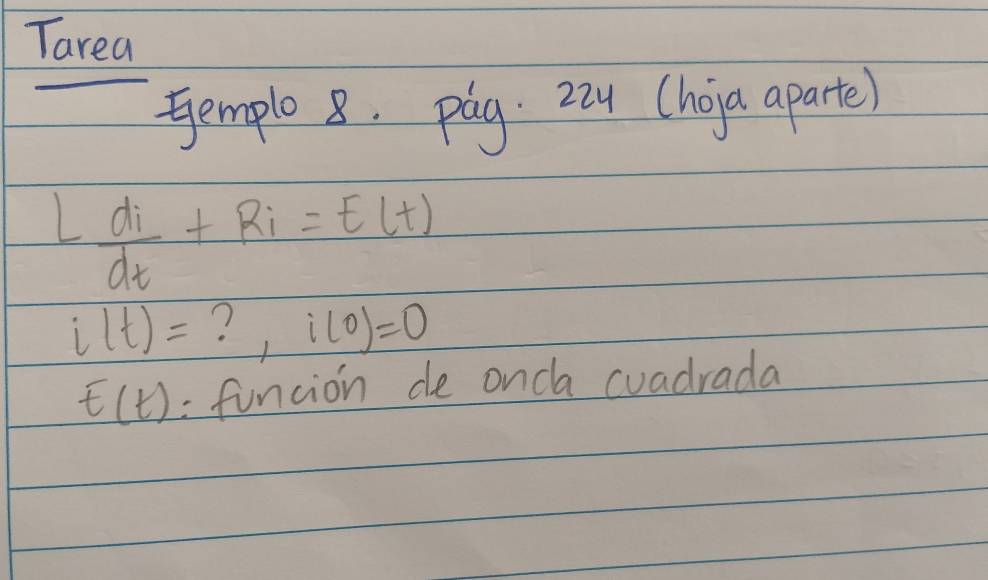 Tarea
Ejemplo 8. pág. 224 (hoja aparte)
L di/dt + Ri = E(t)
i(t) = ?, i(0)=0
E(t): función de onda cuadrada